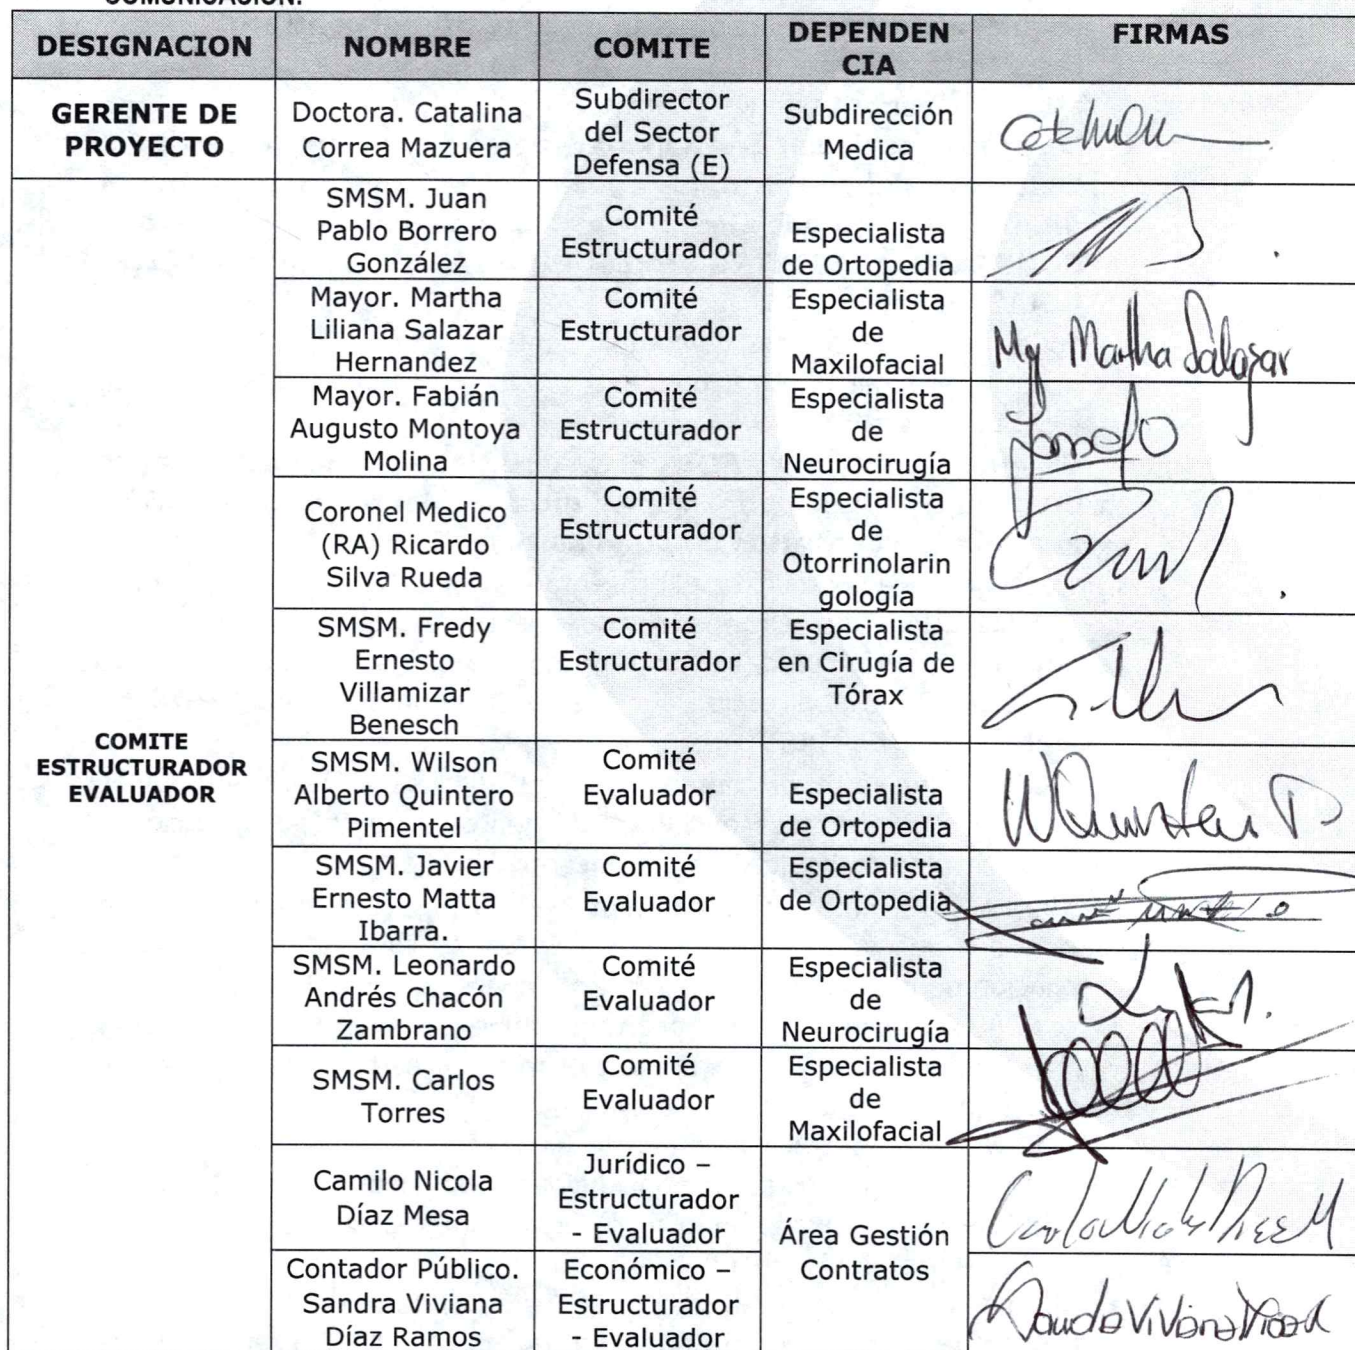 COMUNICACIÓN.
DESIGNACION NOMBRE COMITE DEPENDEN FIRMAS
CIA
GERENTE DE
PROYECTO
Doctora. Catalina
Correa Mazuera
Subdirector
del Sector
Defensa (E)
Subdirección
Medica
COMITE
ESTRUCTURADOR
EVALUADOR
SMSM. Juan
Pablo Borrero
González
Comité
Estructurador
Especialista
de Ortopedia
Mayor. Martha
Liliana Salazar
Hernandez
Comité
Estructurador
Especialista
de
Maxilofacial
My Martha Salazar
Mayor. Fabián
Augusto Montoya
Molina
Comité
Estructurador
Especialista
de
Neurocirugía
Coronel Medico
(RA) Ricardo
Silva Rueda
Comité
Estructurador
Especialista
de
Otorrinolarin
gología
SMSM. Fredy
Ernesto
Villamizar
Benesch
Comité
Estructurador
Especialista
en Cirugía de
Tórax
SMSM. Wilson
Alberto Quintero
Pimentel
Comité
Evaluador
Especialista
de Ortopedia
WQuintero P
SMSM. Javier
Ernesto Matta
Ibarra.
Comité
Evaluador
Especialista
de Ortopedia
SMSM. Leonardo
Andrés Chacón
Zambrano
Comité
Evaluador
Especialista
de
Neurocirugía
SMSM. Carlos
Torres
Comité
Evaluador
Especialista
de
Maxilofacial
Camilo Nicola
Díaz Mesa
Jurídico –
Estructurador
- Evaluador
Área Gestión
Contratos
Contador Público.
Sandra Viviana
Díaz Ramos
Económico –
Estructurador
- Evaluador
Sandra Viviana Diaz R